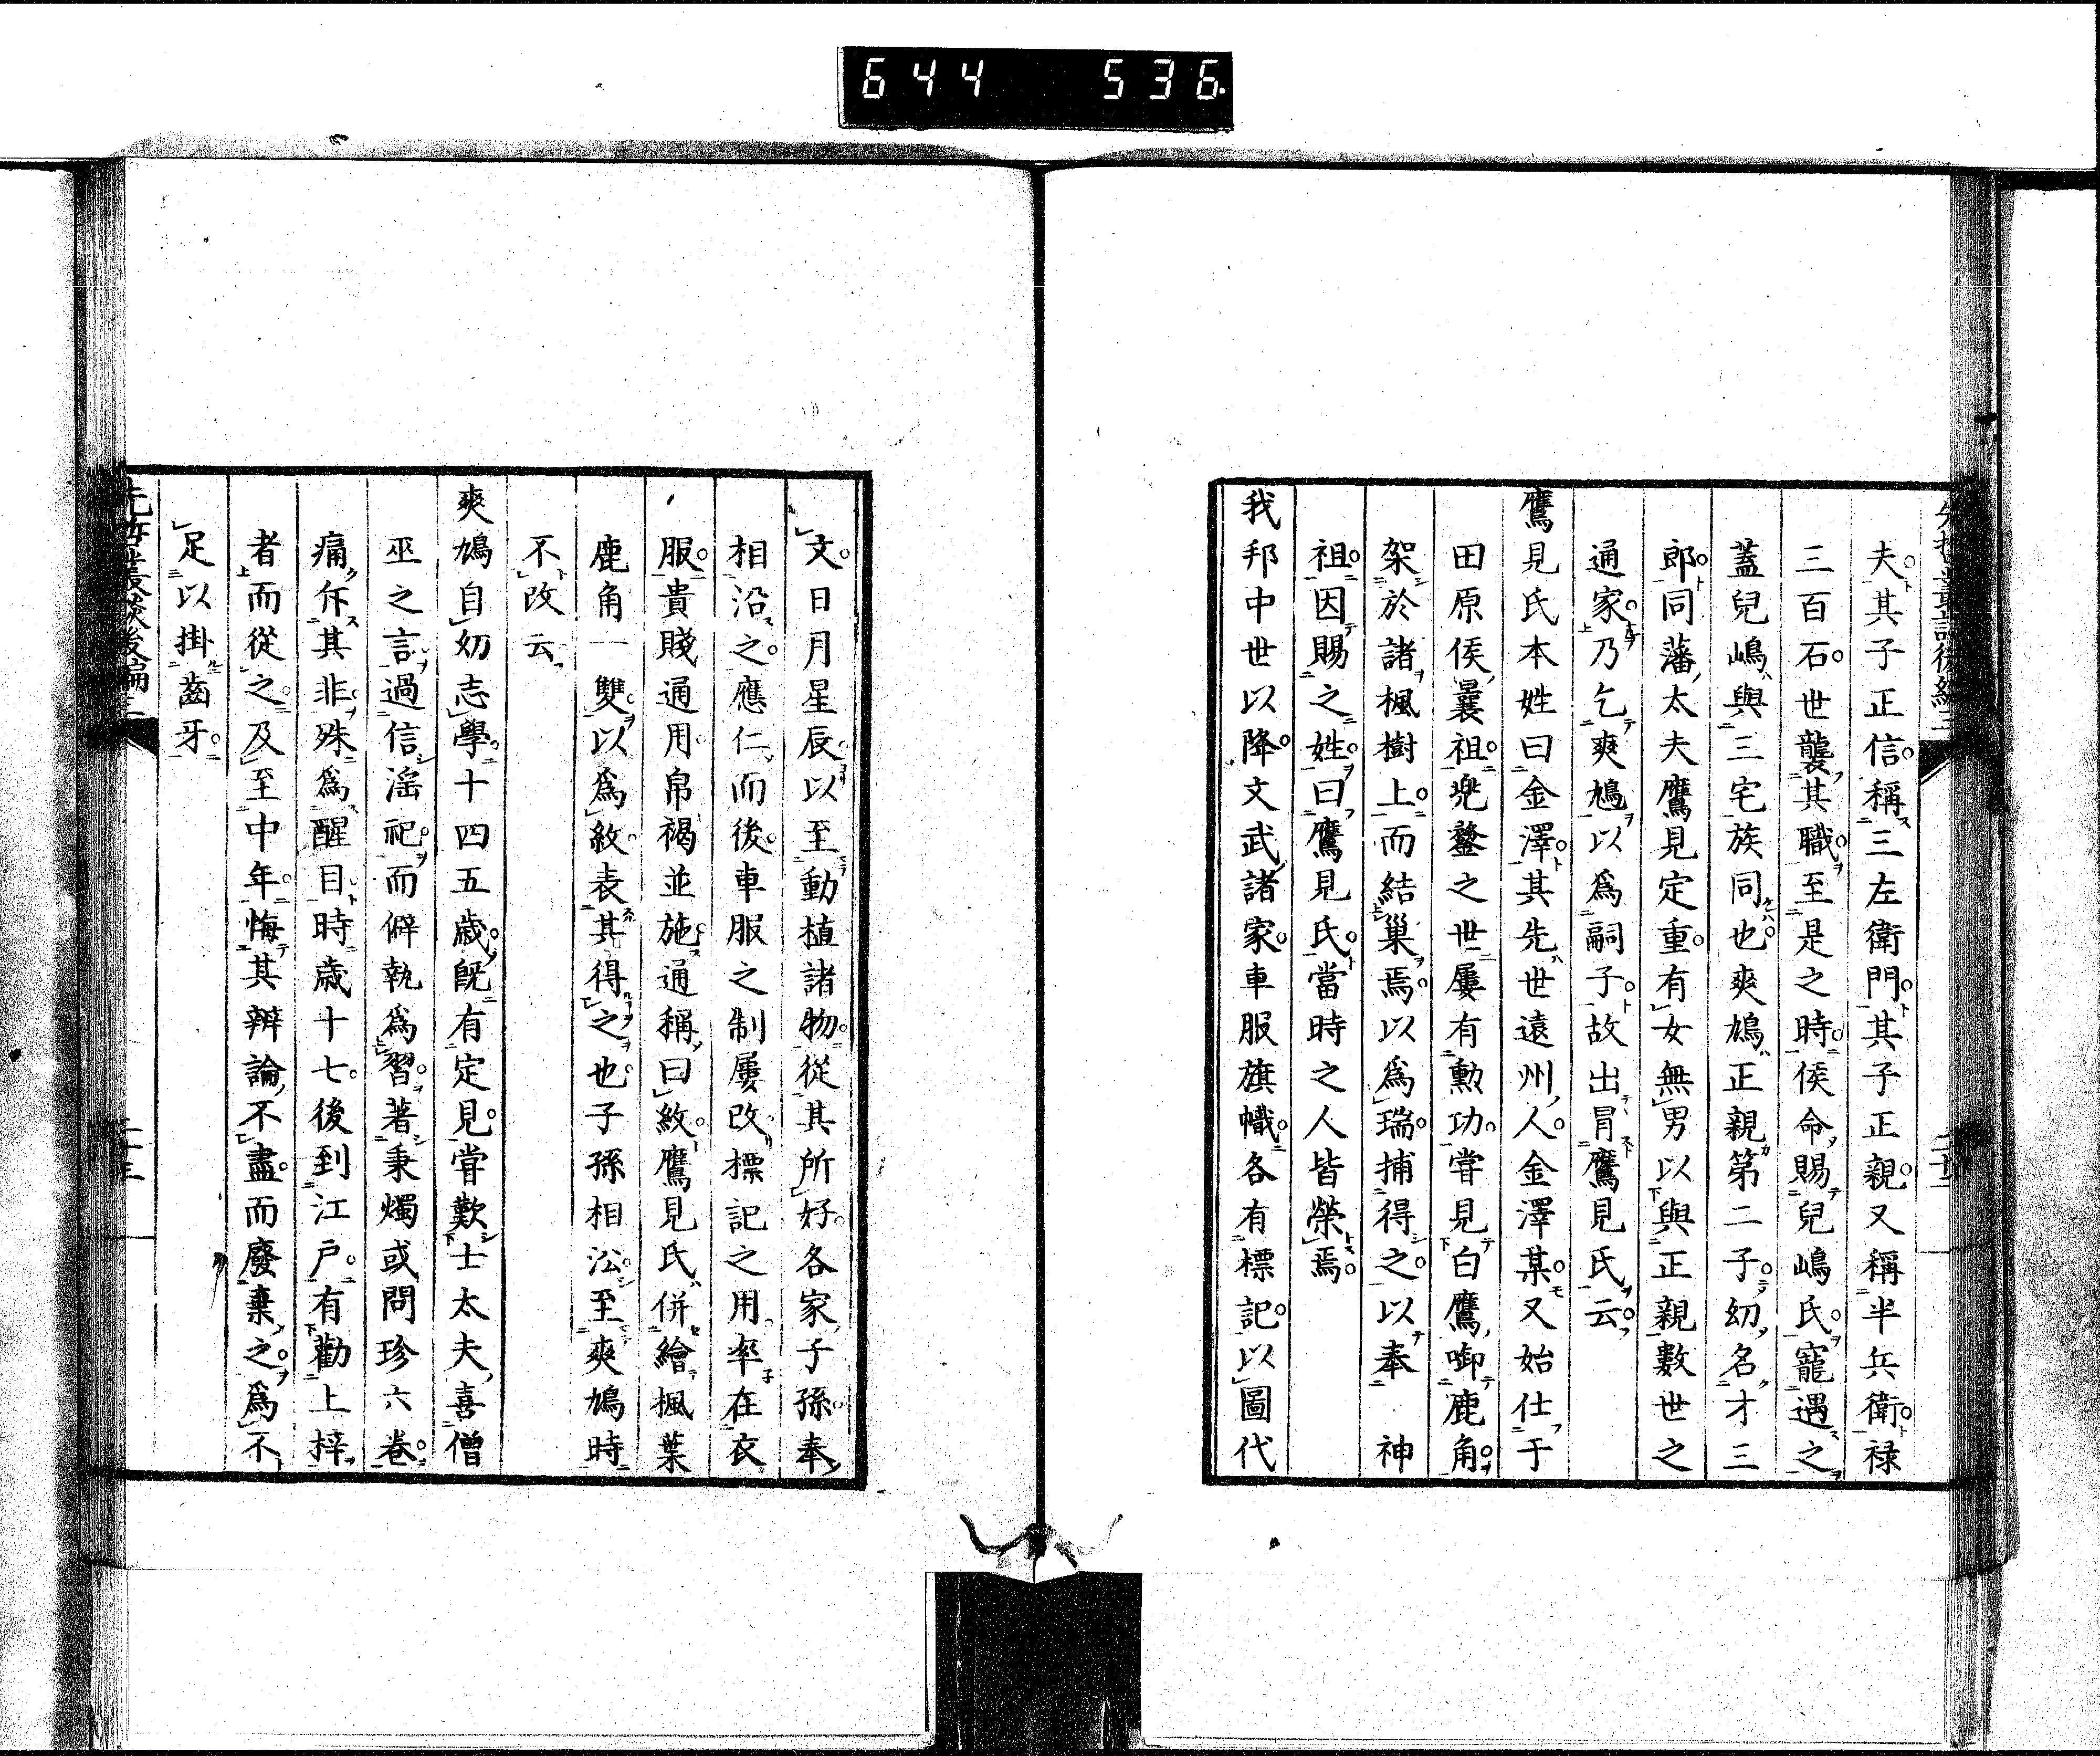 644 536.
夫其子正信稱三左衛門其子正親又稱半兵衛祿
三百石世襲其職至是之時侯命賜兒嶋氏寵遇之
蓋兒嶋與三宅族同也爽鳩正親第二子幼名才三
郎同藩太夫鷹見定重有女無男以與正親數世之
通家乃乞爽鳩以爲嗣子故出冐鷹見氏云
鷹見氏本姓曰金澤其先世遠州人金澤某又始仕于
田原侯曩祖兜鍪之世屢有勳功嘗見白鷹啣鹿角
架於諸楓樹上而結巢焉以爲瑞捕得之以奉 神
祖因賜之姓曰鷹見氏當時之人皆榮焉
我邦中世以降文武諸家車服旗幟各有標記以圖代
文日月星辰以至動植諸物從其所好各家子孫奉
相沿之應仁而後車服之制屢改標記之用率在衣
服貴賤通用帛褐並施通稱曰紋鷹見氏併繪楓葉
鹿角一雙以爲紋表其得之也子孫相沿至爽鳩時
不改云
爽鳩自幼志學十四五歲旣有定見嘗歎士太夫喜僧
巫之言過信淫祀而僻執爲習著秉燭或問珍六卷
痛斥其非殊爲醒目時歲十七後到江戸有勸上梓
者而從之及至中年悔其辨論不盡而廢棄之爲不
足以掛齒牙